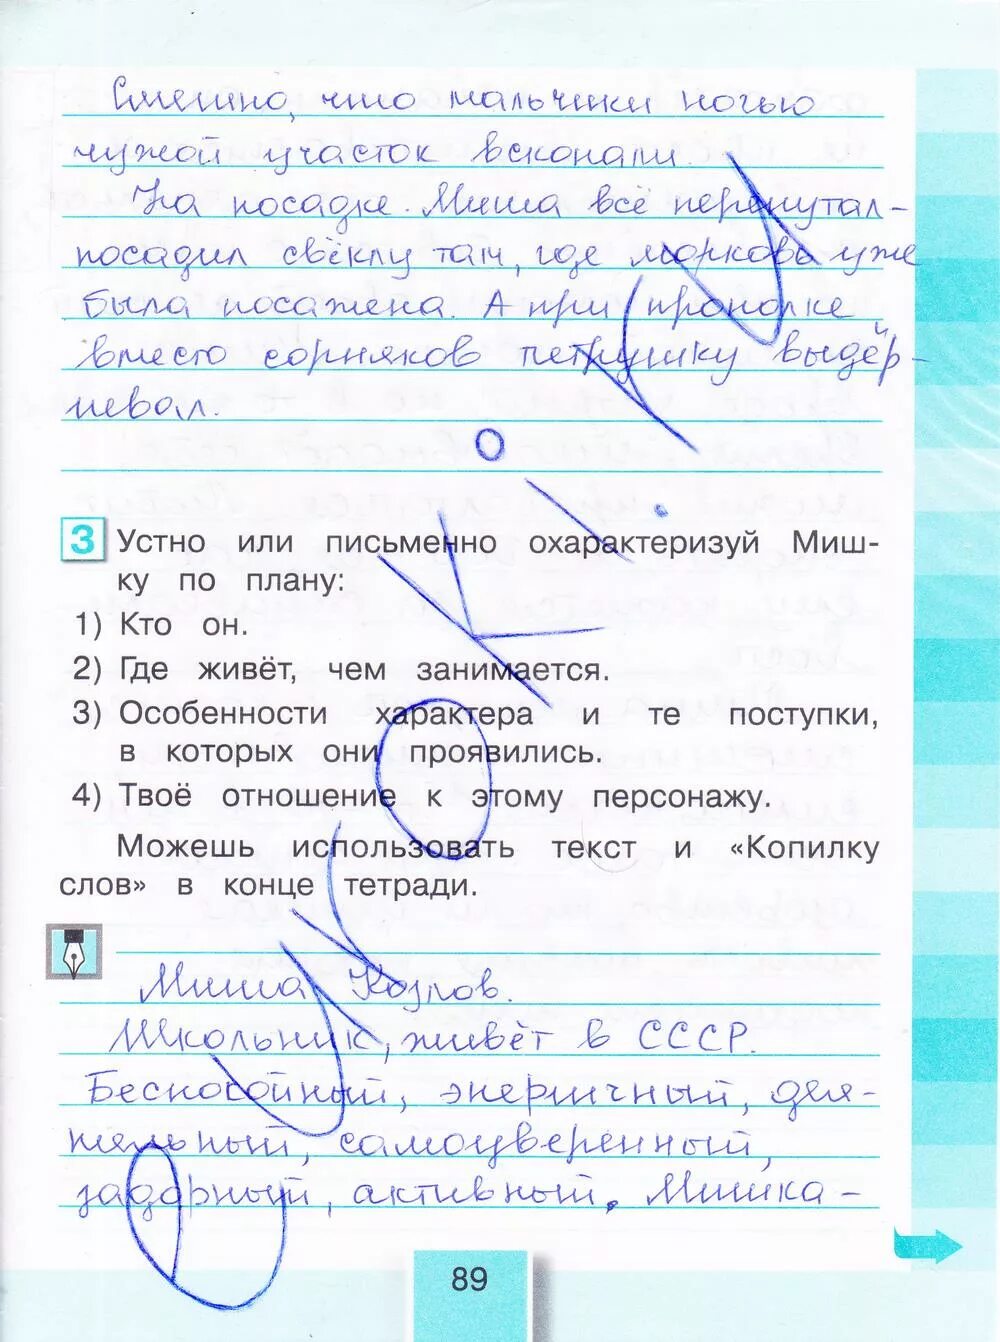 Смешно, что мальчики ночью
чужой участок вскопали.
На посадке Миша всё перепутал-
посадил свёклу там, где морковь уже
была посажена. А при прополке
вместо сорняков петрушку выдёр-
гивал.
3 Устно или письменно охарактеризуй Миш-
ку по плану:
1) Кто он.
2) Где живёт, чем занимается.
3) Особенности характера и те поступки,
в которых они проявились.
4) Твоё отношение к этому персонажу.
Можешь использовать текст и «Копилку
слов» в конце тетради.
Миша Козлов.
Школьник, живёт в СССР.
Беспокойный, энергичный, дея-
тельный, самоуверенный,
задорный, активный. Мишка -
89